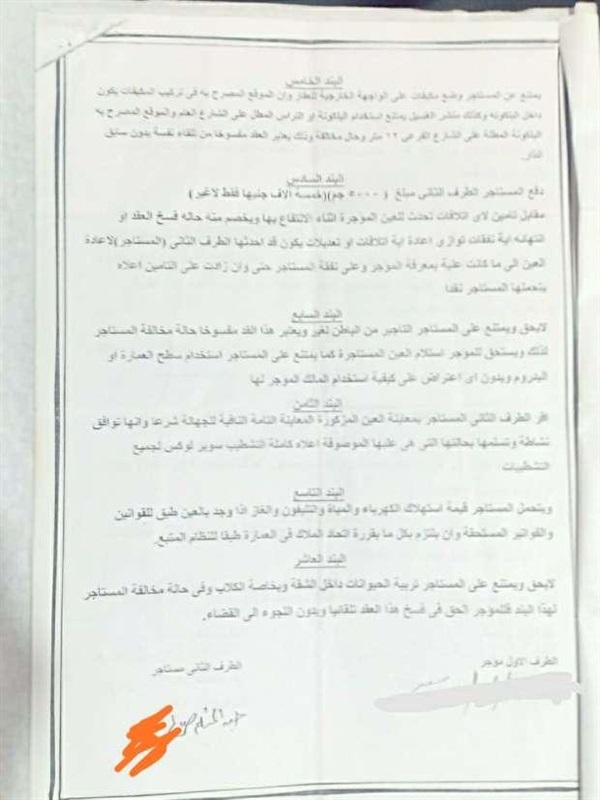 البند الخامس
يمتنع عن المستاجر وضع مكيفات على الواجهة الخارجية للعقار وان الموقع المصرح به فى تركيب المكيفات يكون
داخل البلكونه وكذلك منشر الغسيل يمتنع استخدام البلكونة او التراس المطل على الشارع العام والموقع المصرح به
البلكونة المطلة على الشارع الفرعى ١٢ متر وحال مخالفة وذلك يعتبر العقد مفسوخا من تلقاء نفسة بدون سابق
انذار.
البند السادس
دفع المستاجر الطرف الثانى مبلغ ( ٥٠٠٠ جم)(خمسه الاف جنيها فقط لاغير)
مقابل تامين لاى اتلافات تحدث للعين الموجرة اثناء الانتفاع بها ويخصم منه حاله فسخ العقد او
انتهائه اية نفقات توازى اعادة اية اتلافات او تعديلات يكون قد احدثها الطرف الثانى (المستاجر)لاعادة
العين الى ما كانت علية بمعرفة الموجر وعلى نفقة المستاجر حتى وان زادت على التامين اعلاه
يتحملها المستاجر نقدا
البند السابع
لايحق ويمتنع على المستاجر التاجير من الباطن لغير ويعتبر هذا القد مفسوخا حالة مخالفة المستاجر
لذلك ويستحق للموجر استلام العين المستاجرة كما يمتنع على المستاجر استخدام سطح العمارة او
البدروم وبدون اى اعتراض على كيفية استخدام المالك الموجر لها
البند الثامن
اقر الطرف الثانى المستاجر بمعاينة العين المزكورة المعاينة التامة النافية للجهالة شرعا وانها توافق
نشاطة وتسلمها بحالتها التى هى عليها الموصوفة اعلاه كاملة التشطيب سوبر لوكس لجميع
التشطيبات
البند التاسع
ويتحمل المستاجر قيمة استهلاك الكهرباء والمياة والتليفون والغاز اذا وجد بالعين طبق للقوانين
والفواتير المستحقة وان يلتزم بكل ما يقررة اتحاد الملاك فى العمارة طبقا للنظام المتبع.
البند العاشر
لايحق ويمتنع على المستاجر تربية الحيوانات داخل الشقة وبخاصة الكلاب وفى حالة مخالفة المستاجر
لهذا البند فللموجر الحق فى فسخ هذا العقد تلقائيا وبدون اللجوء الى القضاء.
الطرف الاول موجر
الطرف الثانى مستاجر